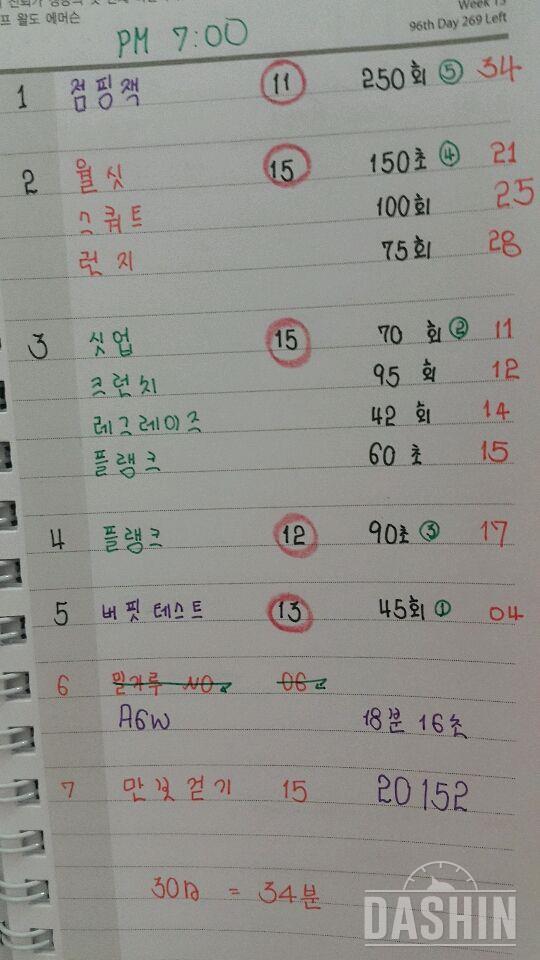 Week 15
프 왈도 에머슨
96th Day 269 Left
PM 7:00
1 점핑잭 11 250회 ⑤ 34
2 월싯 15 150초 ④ 21
스쿼트 100회 25
런지 75회 28
3 싯업 15 70 회 ② 11
크런치 95 회 12
레그레이즈 42 회 14
플랭크 60 초 15
4 플랭크 12 90초 ③ 17
5 버핏테스트 13 45회 ① 04
6 밀가루 NO 06
A6W 18분 16초
7 만보걷기 15 20152
30일 = 34분
DASHIN